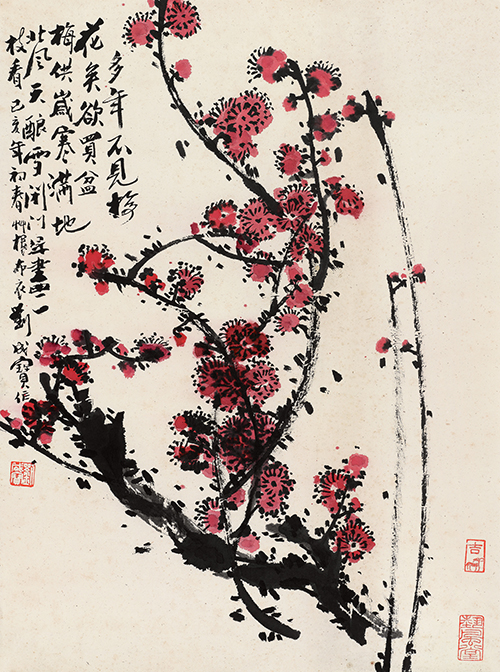 多年不見梅
花矣欲買盆
梅供歲寒滿地
北風天釀雪閉門畫一
枝看己亥年初春艸根布衣劉
寶作